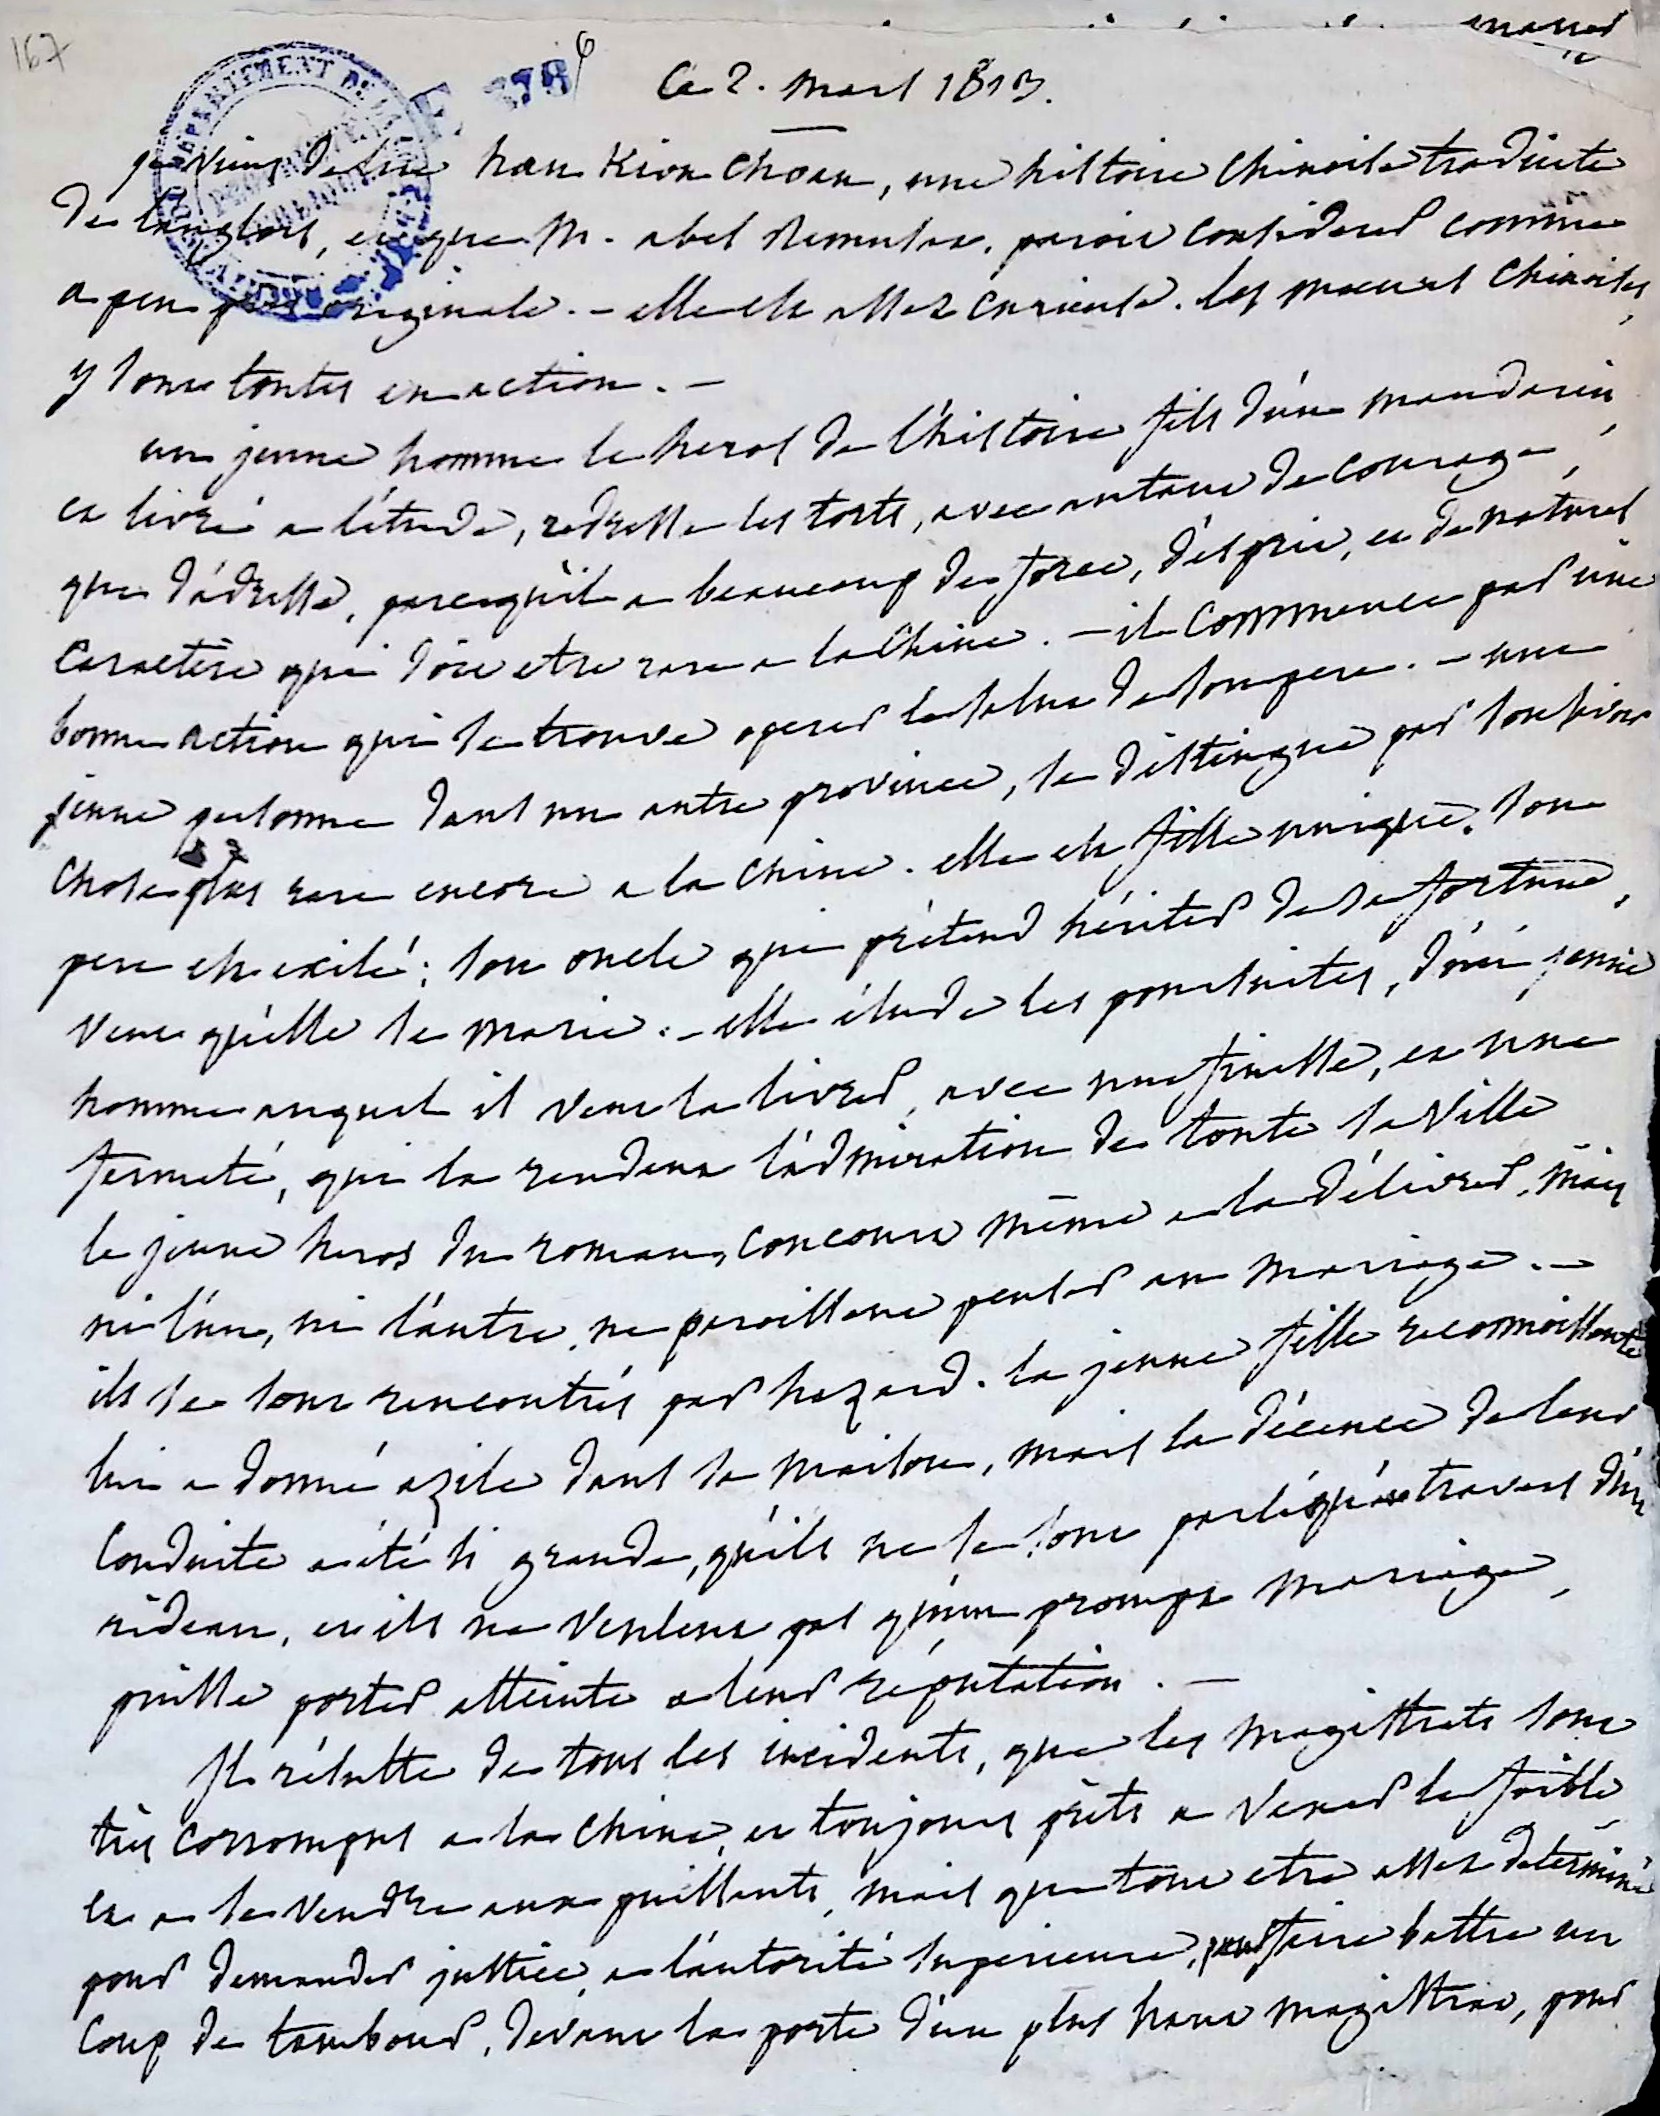 167
378
6
Ce 2. mars 1813.
je viens de lire hau Kiou Choan, une histoire chinoise traduite
de l'anglois, et que M. abel Remusat, paroit considerer comme
a peu près originale. - elle est assez curieuse. les mœurs chinoises,
y sont toutes en action. -
un jeune homme le heros de l'histoire fils d'un mandarin,
et livré a l'étude, redresse les torts, avec autant de courage,
que d'adresse, parcequ'il a beaucoup de force, d'esprit, et de naturel
caractère qui doit etre rare a la Chine. - il commence par une
bonne action qui se trouve operer le salut de son pere. - une
jeune personne dans une autre province, se distingue par son esprit
chose plus rare encore a la Chine. elle est fille unique. son
pere est exilé; son oncle qui prétend hériter de sa fortune,
veut qu'elle se marie. - elle élude les poursuites, d'un jeune
homme auquel il veut la livrer, avec une finesse, et une
fermeté, qui la rendent l'admiration de toute la ville
le jeune heros du roman, concourt même a la délivrer, mais
ni l'un, ni l'autre, ne paroissent penser au mariage. -
ils se sont rencontrés par hazard. la jeune fille reconnoissante
lui a donné azile dans sa maison, mais la décence de leur
conduite a été si grande, qu'ils ne se sont parlé qu'a travers d'un
rideau, et ils ne veulent pas qu'un prompt mariage,
puisse porter atteinte a leur réputation. -
Il résulte de tous les incidents, que les magistrats sont
très corrompus a la Chine, et toujours prêts a vexer le foible
et a se vendre aux puissants, mais que tout etre assez déterminé
pour demander justice, a l'autorité superieure, peut faire battre un
coup de tambour, devant la porte d'un plus haut magistrat, pour